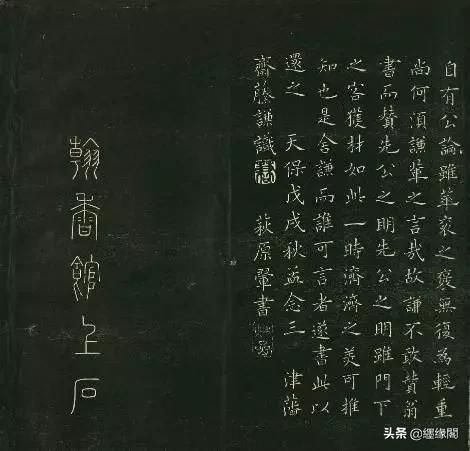 自有公論雖華衮之褒無復為輕重
尚何須謙輩之言哉故謙不敢贊翁
書而贊先公之明先公之明雖門下
之客獲材如此一時濟濟之美可推
知也是舍謙而誰可言者遂書此以
還之 天保戊戌秋孟念三 津藩
齋藤謙識 萩原翬書
翰香館上石
头条 @纒缘閣